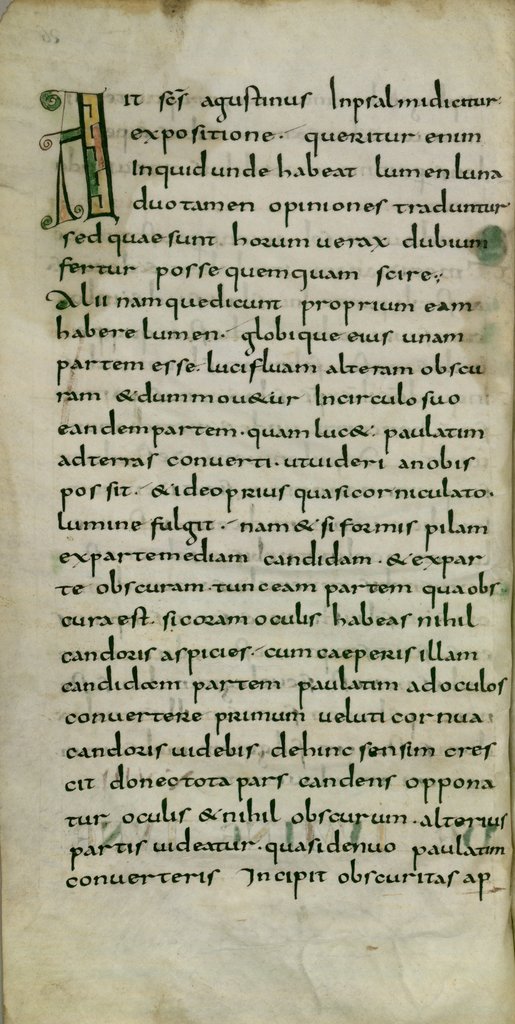 AIT scs agustinus Inpsalmidicitur
expositione. queritur enim
Inquid unde habeat lumen luna
duo tamen opiniones traduntur
sed quae sunt horum uerax dubium
fertur posse quemquam scire.,
Alii namque dicunt proprium eam
habere lumen. globique eius unam
partem esse. lucifluam alteram obscu
ram &dum mou&ur Incirculo suo
eandem partem. quam luc&. paulatim
adterras conuerti. utuideri anobis
possit. &ideo prius quasi corniculato.
lumine fulgit. nam & si formis pilam
exparte mediam candidam. & expar
te obscuram. tunc eam partem quaobs
cura est. si coram oculis habeas nihil
candoris aspicies. cum caeperis illam
candidam partem paulatim adoculos
conuertere primum ueluti cornua
candoris uidebis, dehinc sensim cres
cit donec tota pars candens oppona
tur oculis & nihil obscurum. alterius
partis uideatur. quasi denuo paulatim
conuerteris Incipit obscuritas ap